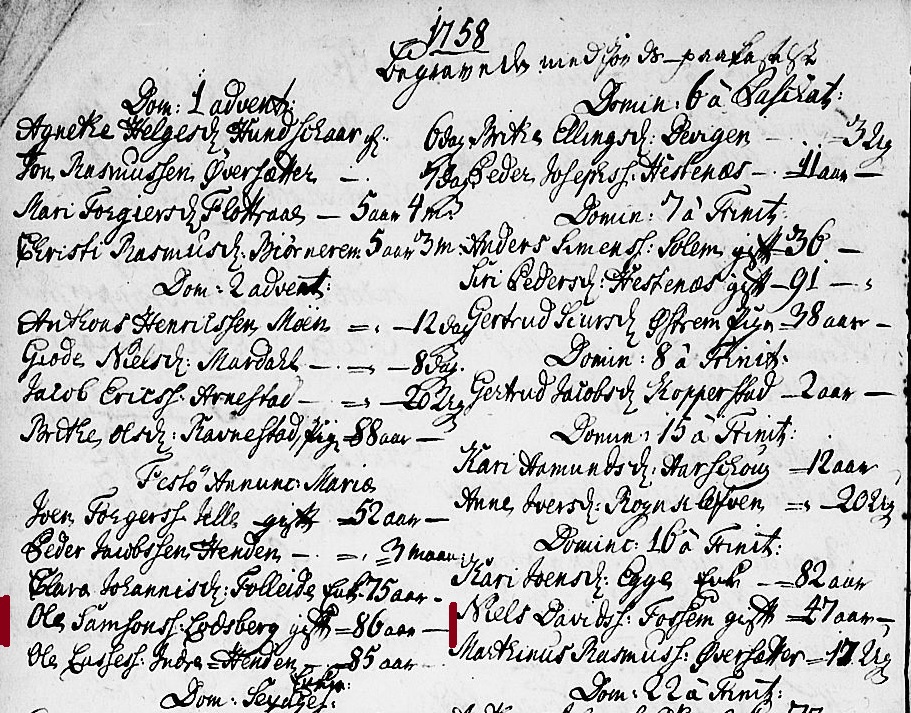 1758
Begravede med Jords paakastelse
Dom: 1 advent:
Agnethe Helgesd Hundschaar 6 dag
Jon Rasmussen Øversætter — 7 dag
Mari Torgiersd Flottraae — 5 aar 4 md
Christi Rasmusd: Biørnerem 5 aar 3 m
Dom: 2 advent:
Anthons Henricssen Moen — 12 dag
Giøde Nielsd: Mardahl — 8 dag
Jacob Ericss: Arnestad — 20 Ug
Brithe Olsd: Ravnestad, pig 88 aar —
Festo Annunc: Mariæ
Joen Torgerss: gift 52 aar —
Peder Jacobssen Henden — 3 maan:
Clara Johannisd: Folleide Enk 75 aar —
Ole Samsonss: Eidsberg gift 86 aar —
Ole Lassess: Indre Henden — 85 aar
Dom: Sexages:
Domin: 6 à Paschat:
Brithe Ellingsd: Devigen — 3 Ug
Peder Josephss: Hestenæs — 11 aar —
Domin: 7 à Trinit:
Anders Simenss: Solem gift 36 —
Siri Pedersd: Hestenæs gift 91 —
Gertrud Siursd Østrem pige 38 aar —
Domin: 8 à Trinit:
Gertrud Jacobsd Kopperstad — 2 aar —
Domin: 15 à Trinit:
Kari Hamundsd: Aarschoug — 12 aar
Anne Iversd: — 20 Ug
Dominc: 16 à Trinit:
Kari Joensd: Egge Enk — 82 aar
Niels Davidss: Fossem gift 47 aar —
Marthinus Rasmuss: Øversætter — 17 Ug
Dom: 22 à Trinit: